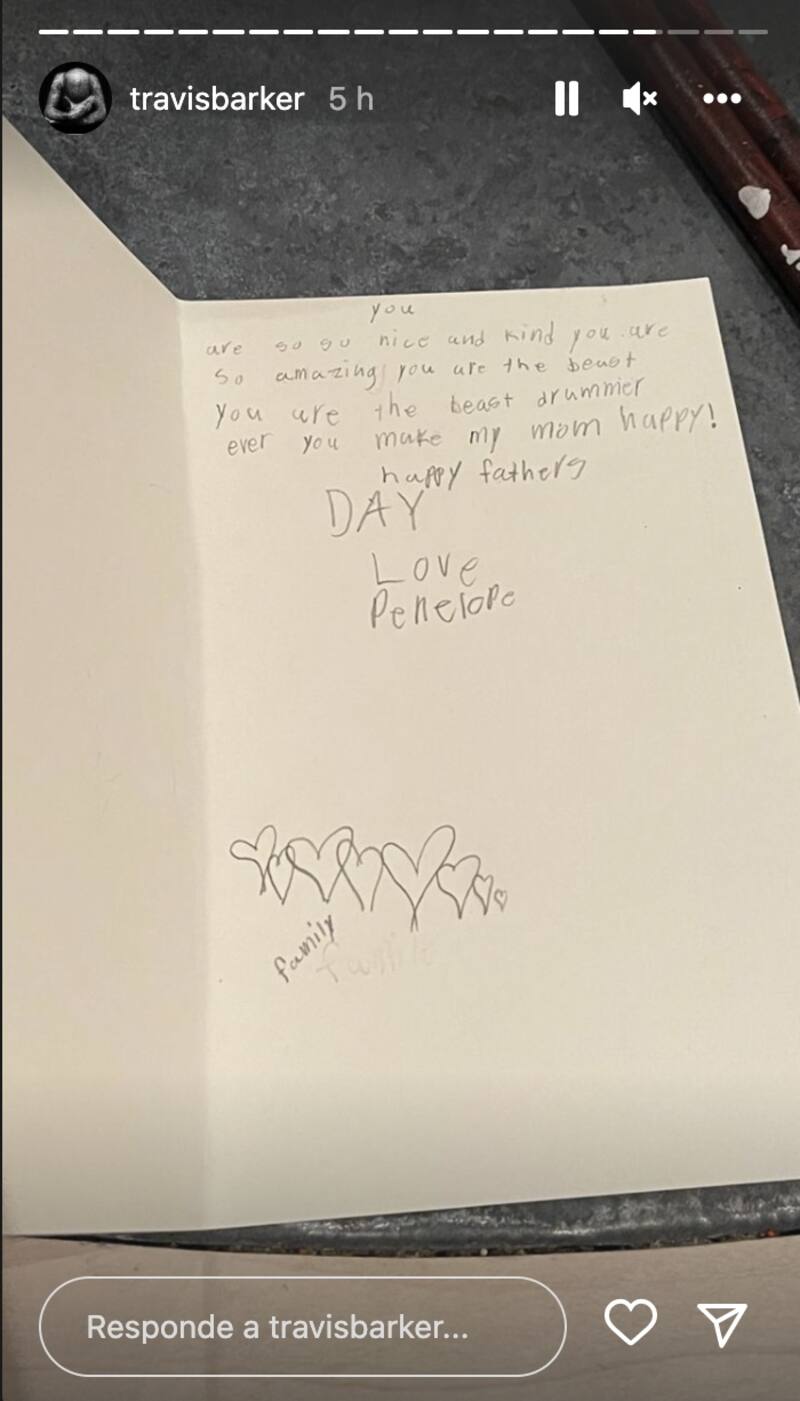 travisbarker 5 h
you
are so so nice and kind you are
so amazing you are the beast
you are the beast drummer
ever you make my mom happy!
happy fathers
DAY
Love
Penelope
family
Responde a travisbarker...